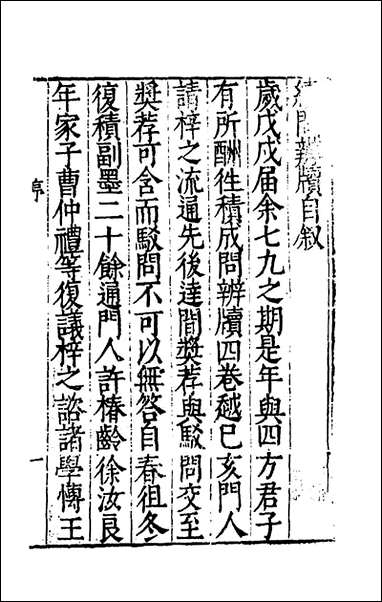 續問辨牘自叙
歲戊戌届余七九之期是年與四方君子
有所酬徃積成問辨牘四卷越己亥門人
請梓之流通先後達間奬荐與駁問交至
奬荐可含而駁問不可以無答自春徂冬
復積副墨二十餘通門人許椿齡徐汝良
年家子曹仲禮等復議梓之諮諸學愽王
序
一